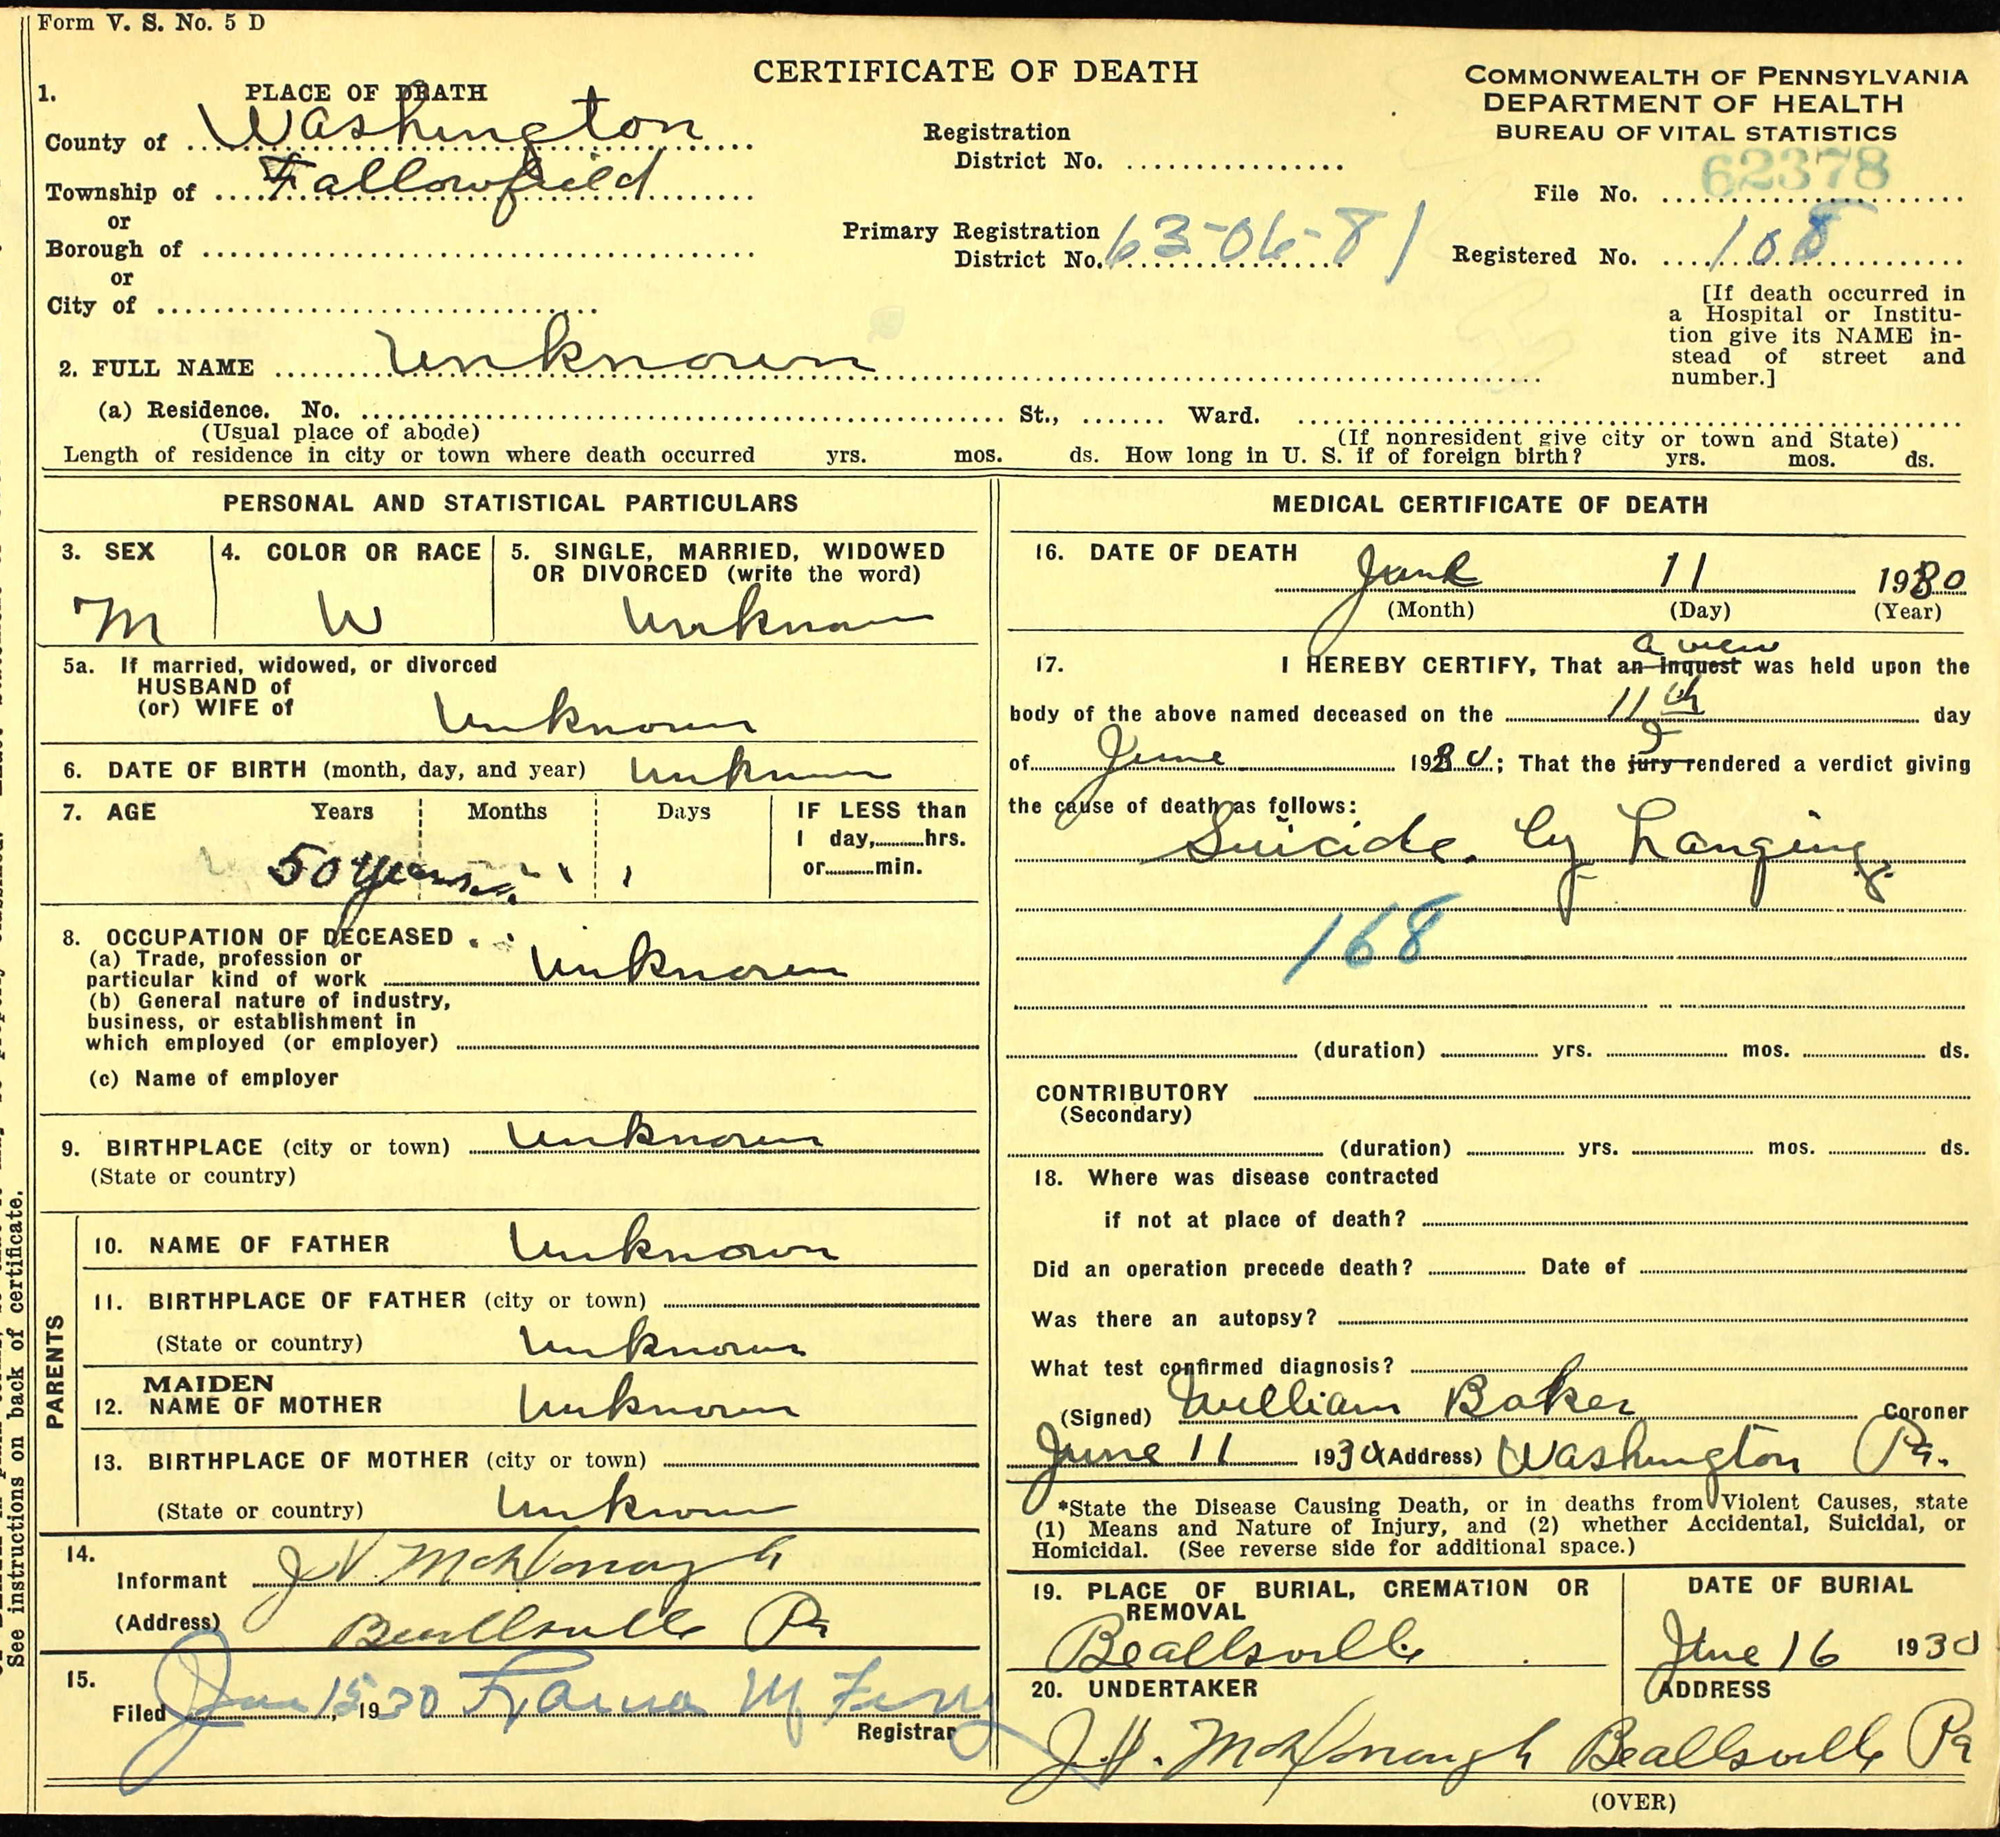 Form V. S. No. 5 D
CERTIFICATE OF DEATH
COMMONWEALTH OF PENNSYLVANIA
DEPARTMENT OF HEALTH
BUREAU OF VITAL STATISTICS
1. PLACE OF DEATH
County of Washington
Township of Fallowfield
or
Borough of
or
City of
Registration
District No.
Primary Registration
District No. 63-06-81
File No. 62378
Registered No. 108
[If death occurred in
a Hospital or Institu-
tion give its NAME in-
stead of street and
number.]
2. FULL NAME Unknown
(a) Residence. No. St., Ward.
(Usual place of abode) (If nonresident give city or town and State)
Length of residence in city or town where death occurred yrs. mos. ds. How long in U. S. if of foreign birth? yrs. mos. ds.
PERSONAL AND STATISTICAL PARTICULARS
3. SEX
M
4. COLOR OR RACE
W
5. SINGLE, MARRIED, WIDOWED
OR DIVORCED (write the word)
Unknown
5a. If married, widowed, or divorced
HUSBAND of
(or) WIFE of Unknown
6. DATE OF BIRTH (month, day, and year) Unknown
7. AGE Years Months Days IF LESS than
1 day, hrs.
or min.
50 years
8. OCCUPATION OF DECEASED
(a) Trade, profession or
particular kind of work Unknown
(b) General nature of industry,
business, or establishment in
which employed (or employer)
(c) Name of employer
9. BIRTHPLACE (city or town) Unknown
(State or country)
PARENTS
10. NAME OF FATHER Unknown
11. BIRTHPLACE OF FATHER (city or town)
(State or country) Unknown
12. MAIDEN
NAME OF MOTHER Unknown
13. BIRTHPLACE OF MOTHER (city or town)
(State or country) Unknown
14.
Informant J.V. McDonough
(Address) Beallsville Pa
15.
Filed Jun 15, 1930
Registrar
MEDICAL CERTIFICATE OF DEATH
16. DATE OF DEATH June 11 1930
(Month) (Day) (Year)
a view
17. I HEREBY CERTIFY, That an inquest was held upon the
body of the above named deceased on the 11th day
I
of June 1930; That the jury rendered a verdict giving
the cause of death as follows:
Suicide by hanging
168
(duration) yrs. mos. ds.
CONTRIBUTORY
(Secondary)
(duration) yrs. mos. ds.
18. Where was disease contracted
if not at place of death?
Did an operation precede death? Date of
Was there an autopsy?
What test confirmed diagnosis?
(Signed) William Baker Coroner
June 11 1930 (Address) Washington Pa.
*State the Disease Causing Death, or in deaths from Violent Causes, state
(1) Means and Nature of Injury, and (2) whether Accidental, Suicidal, or
Homicidal. (See reverse side for additional space.)
19. PLACE OF BURIAL, CREMATION OR
REMOVAL
Beallsville
DATE OF BURIAL
June 16 1930
20. UNDERTAKER
J.V. McDonough
ADDRESS
Beallsville Pa
(OVER)
See instructions on back of certificate.